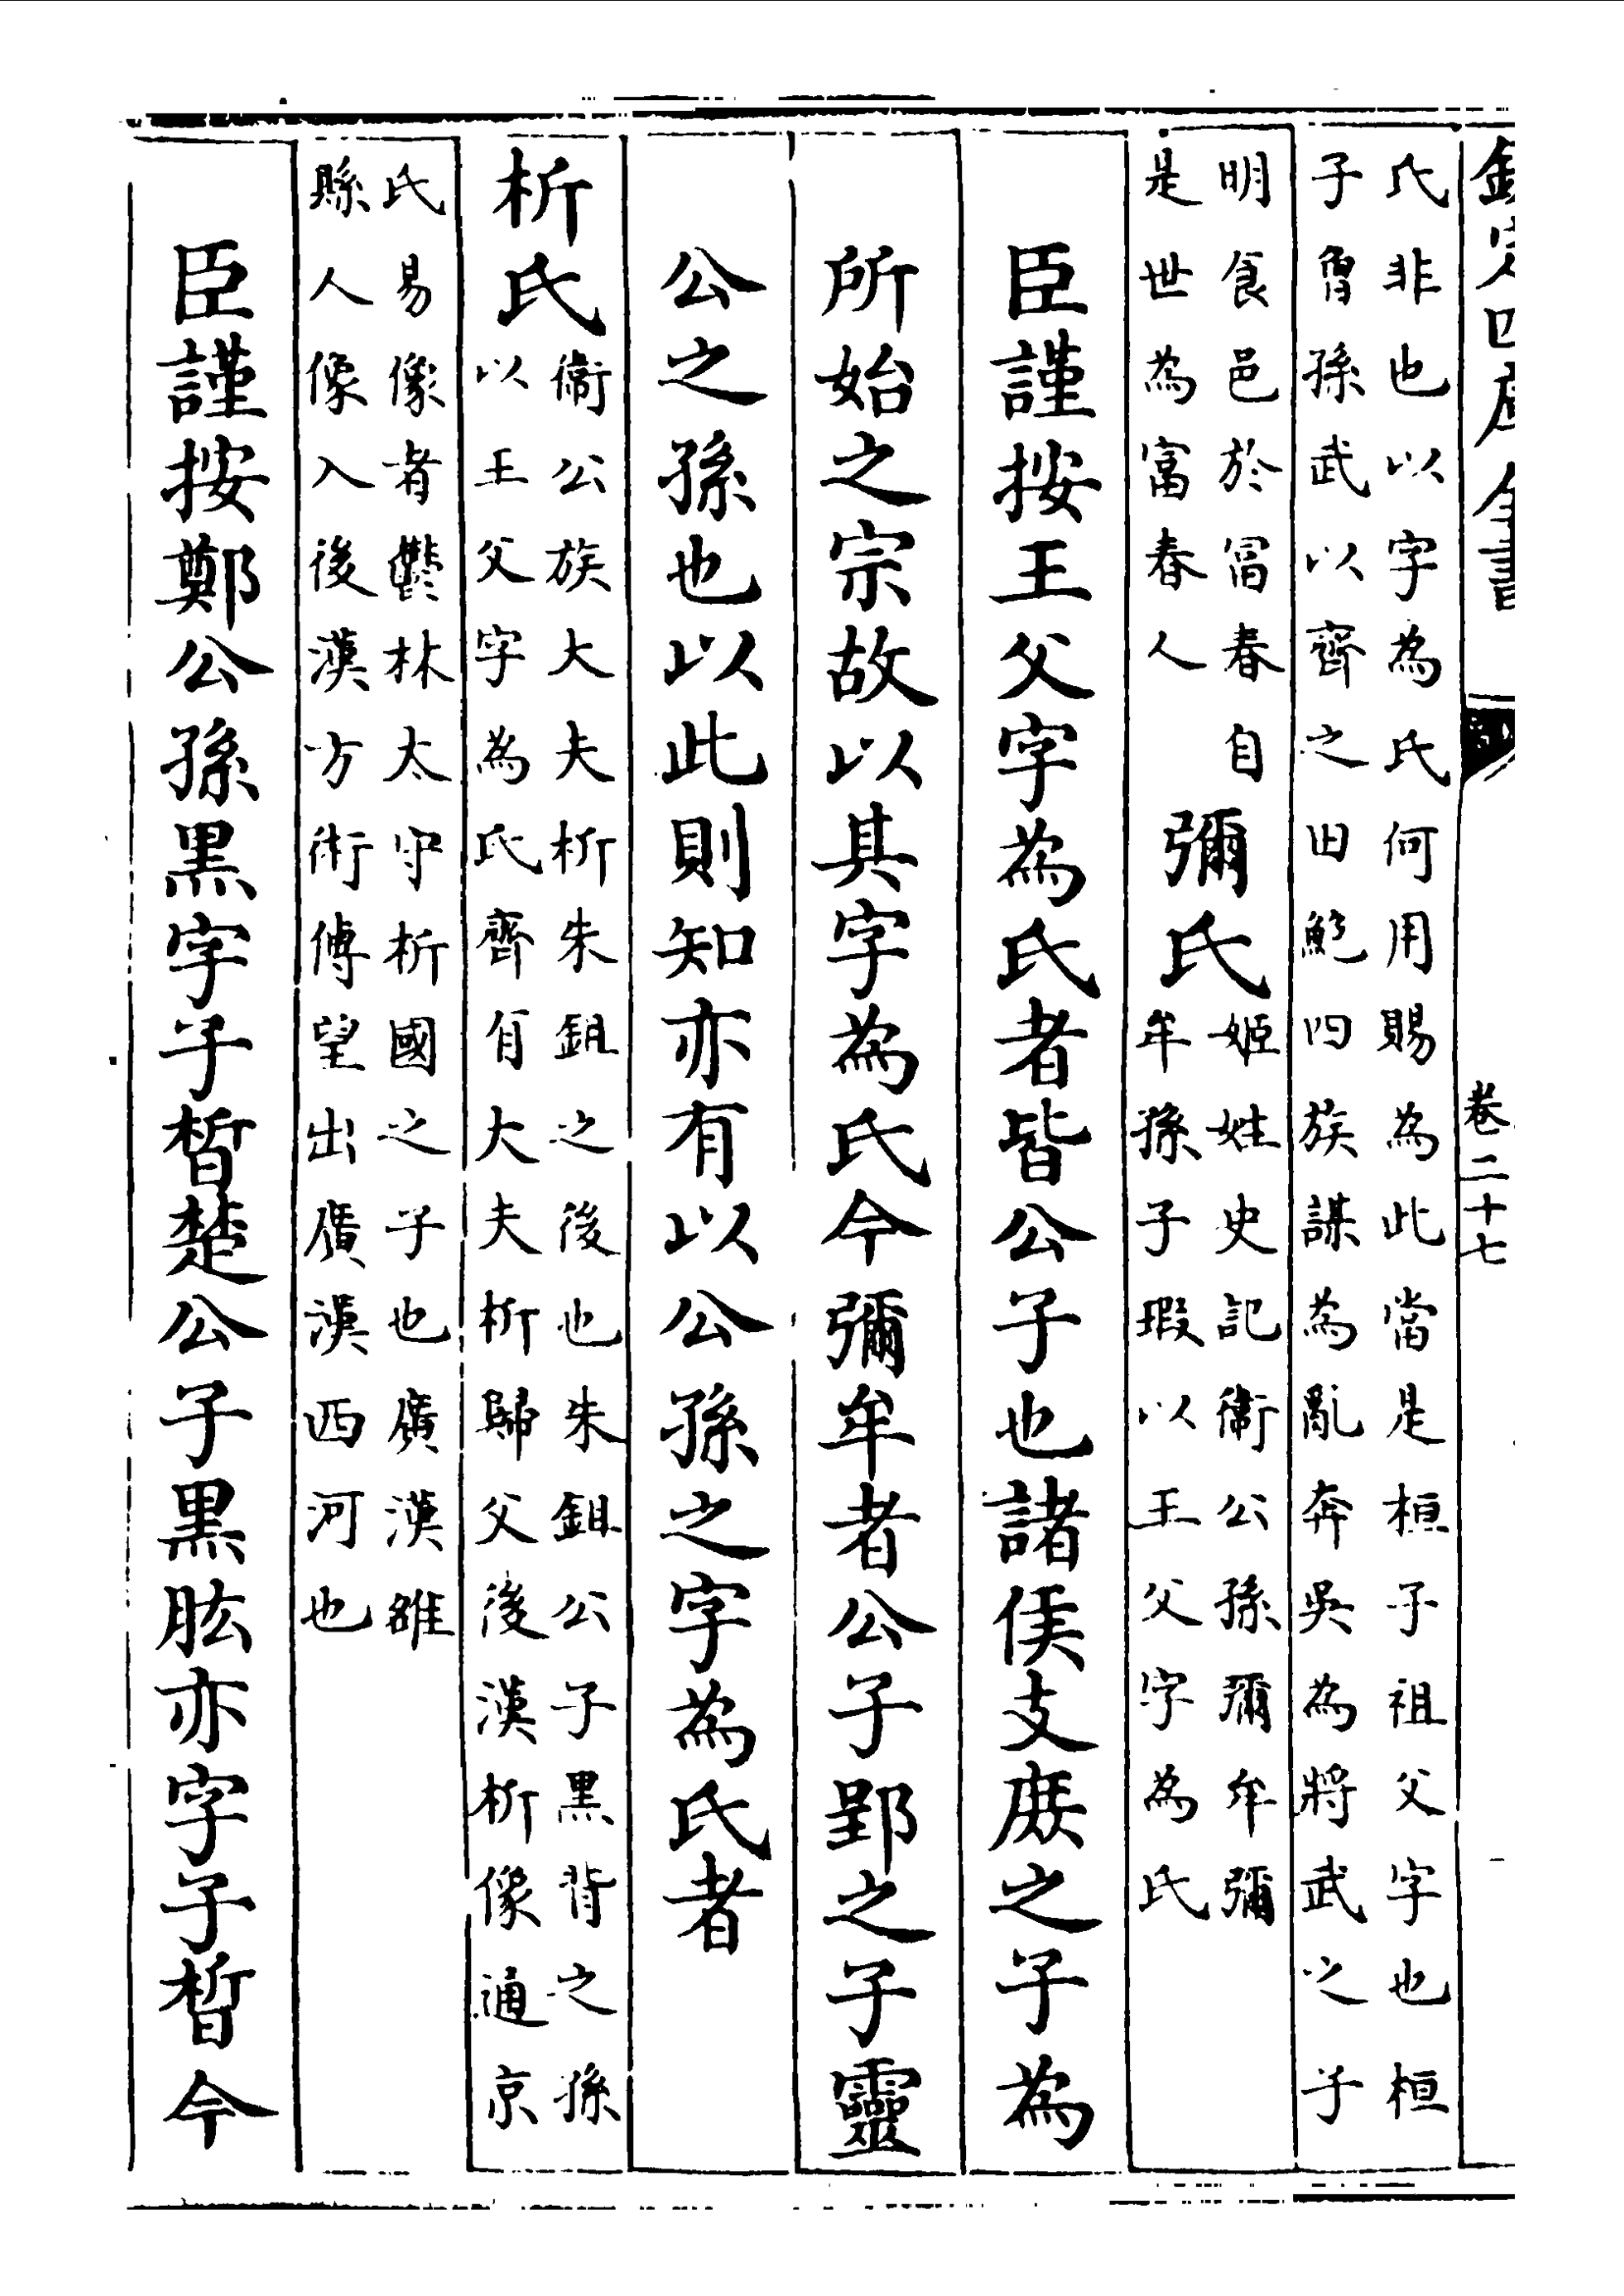 欽定四庫全書
卷二十七
氏非也以字為氏何用賜為此當是桓子祖父字也桓
子曾孫武以齊之田鮑四族謀為亂奔吳為將武之子
明食邑於富春自
是世為富春人
彌氏
姬姓史記衛公孫彌牟彌
牟孫子瑕以王父字為氏
臣謹按王父字為氏者皆公子也諸侯支庶之子為
所始之宗故以其字為氏今彌牟者公子郢之子靈
公之孫也以此則知亦有以公孫之字為氏者
析氏
衞公族大夫析朱鉏之後也朱鉏公子黑背之孫
以王父字為氏齊有大夫析歸父後漢析像通京
氏易像者鬱林太守析國之子也廣漢雒
縣人像入後漢方術傳望出廣漢西河也
臣謹按鄭公孫黒字子晳楚公子黒肱亦字子晳今